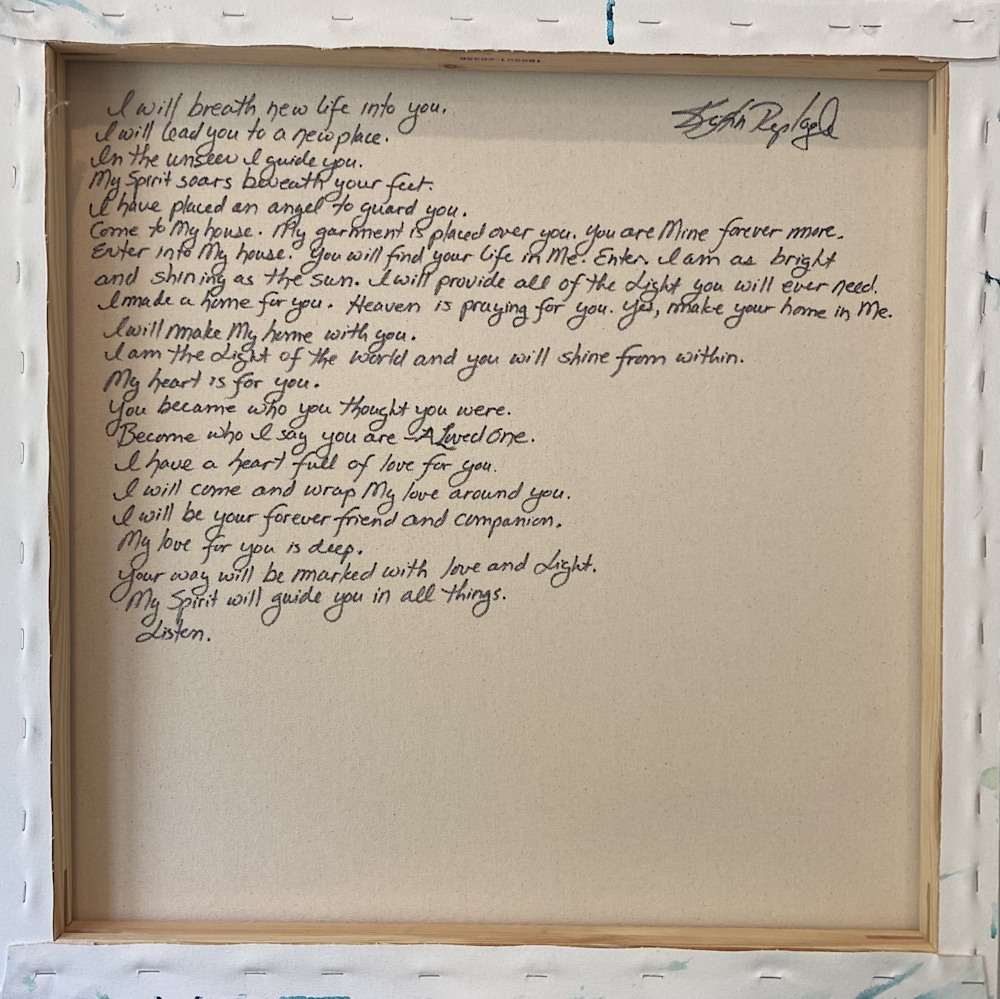 I will breath new life into you.
I will lead you to a new place.
In the unseen I guide you.
My Spirit soars beneath your feet.
I have placed an angel to guard you.
Come to My house. My garment is placed over you. You are Mine forever more.
Enter into My house. You will find your life in Me. Enter. I am as bright
and shining as the sun. I will provide all of the Light you will ever need.
I made a home for you. Heaven is praying for you. Yes, make your home in Me.
I will make My home with you.
I am the Light of the world and you will shine from within.
My heart is for you.
You became who you thought you were.
Become who I say you are - A Loved One.
I have a heart full of love for you.
I will come and wrap My love around you.
I will be your forever friend and companion.
My love for you is deep.
Your way will be marked with love and Light.
My Spirit will guide you in all things.
Listen.